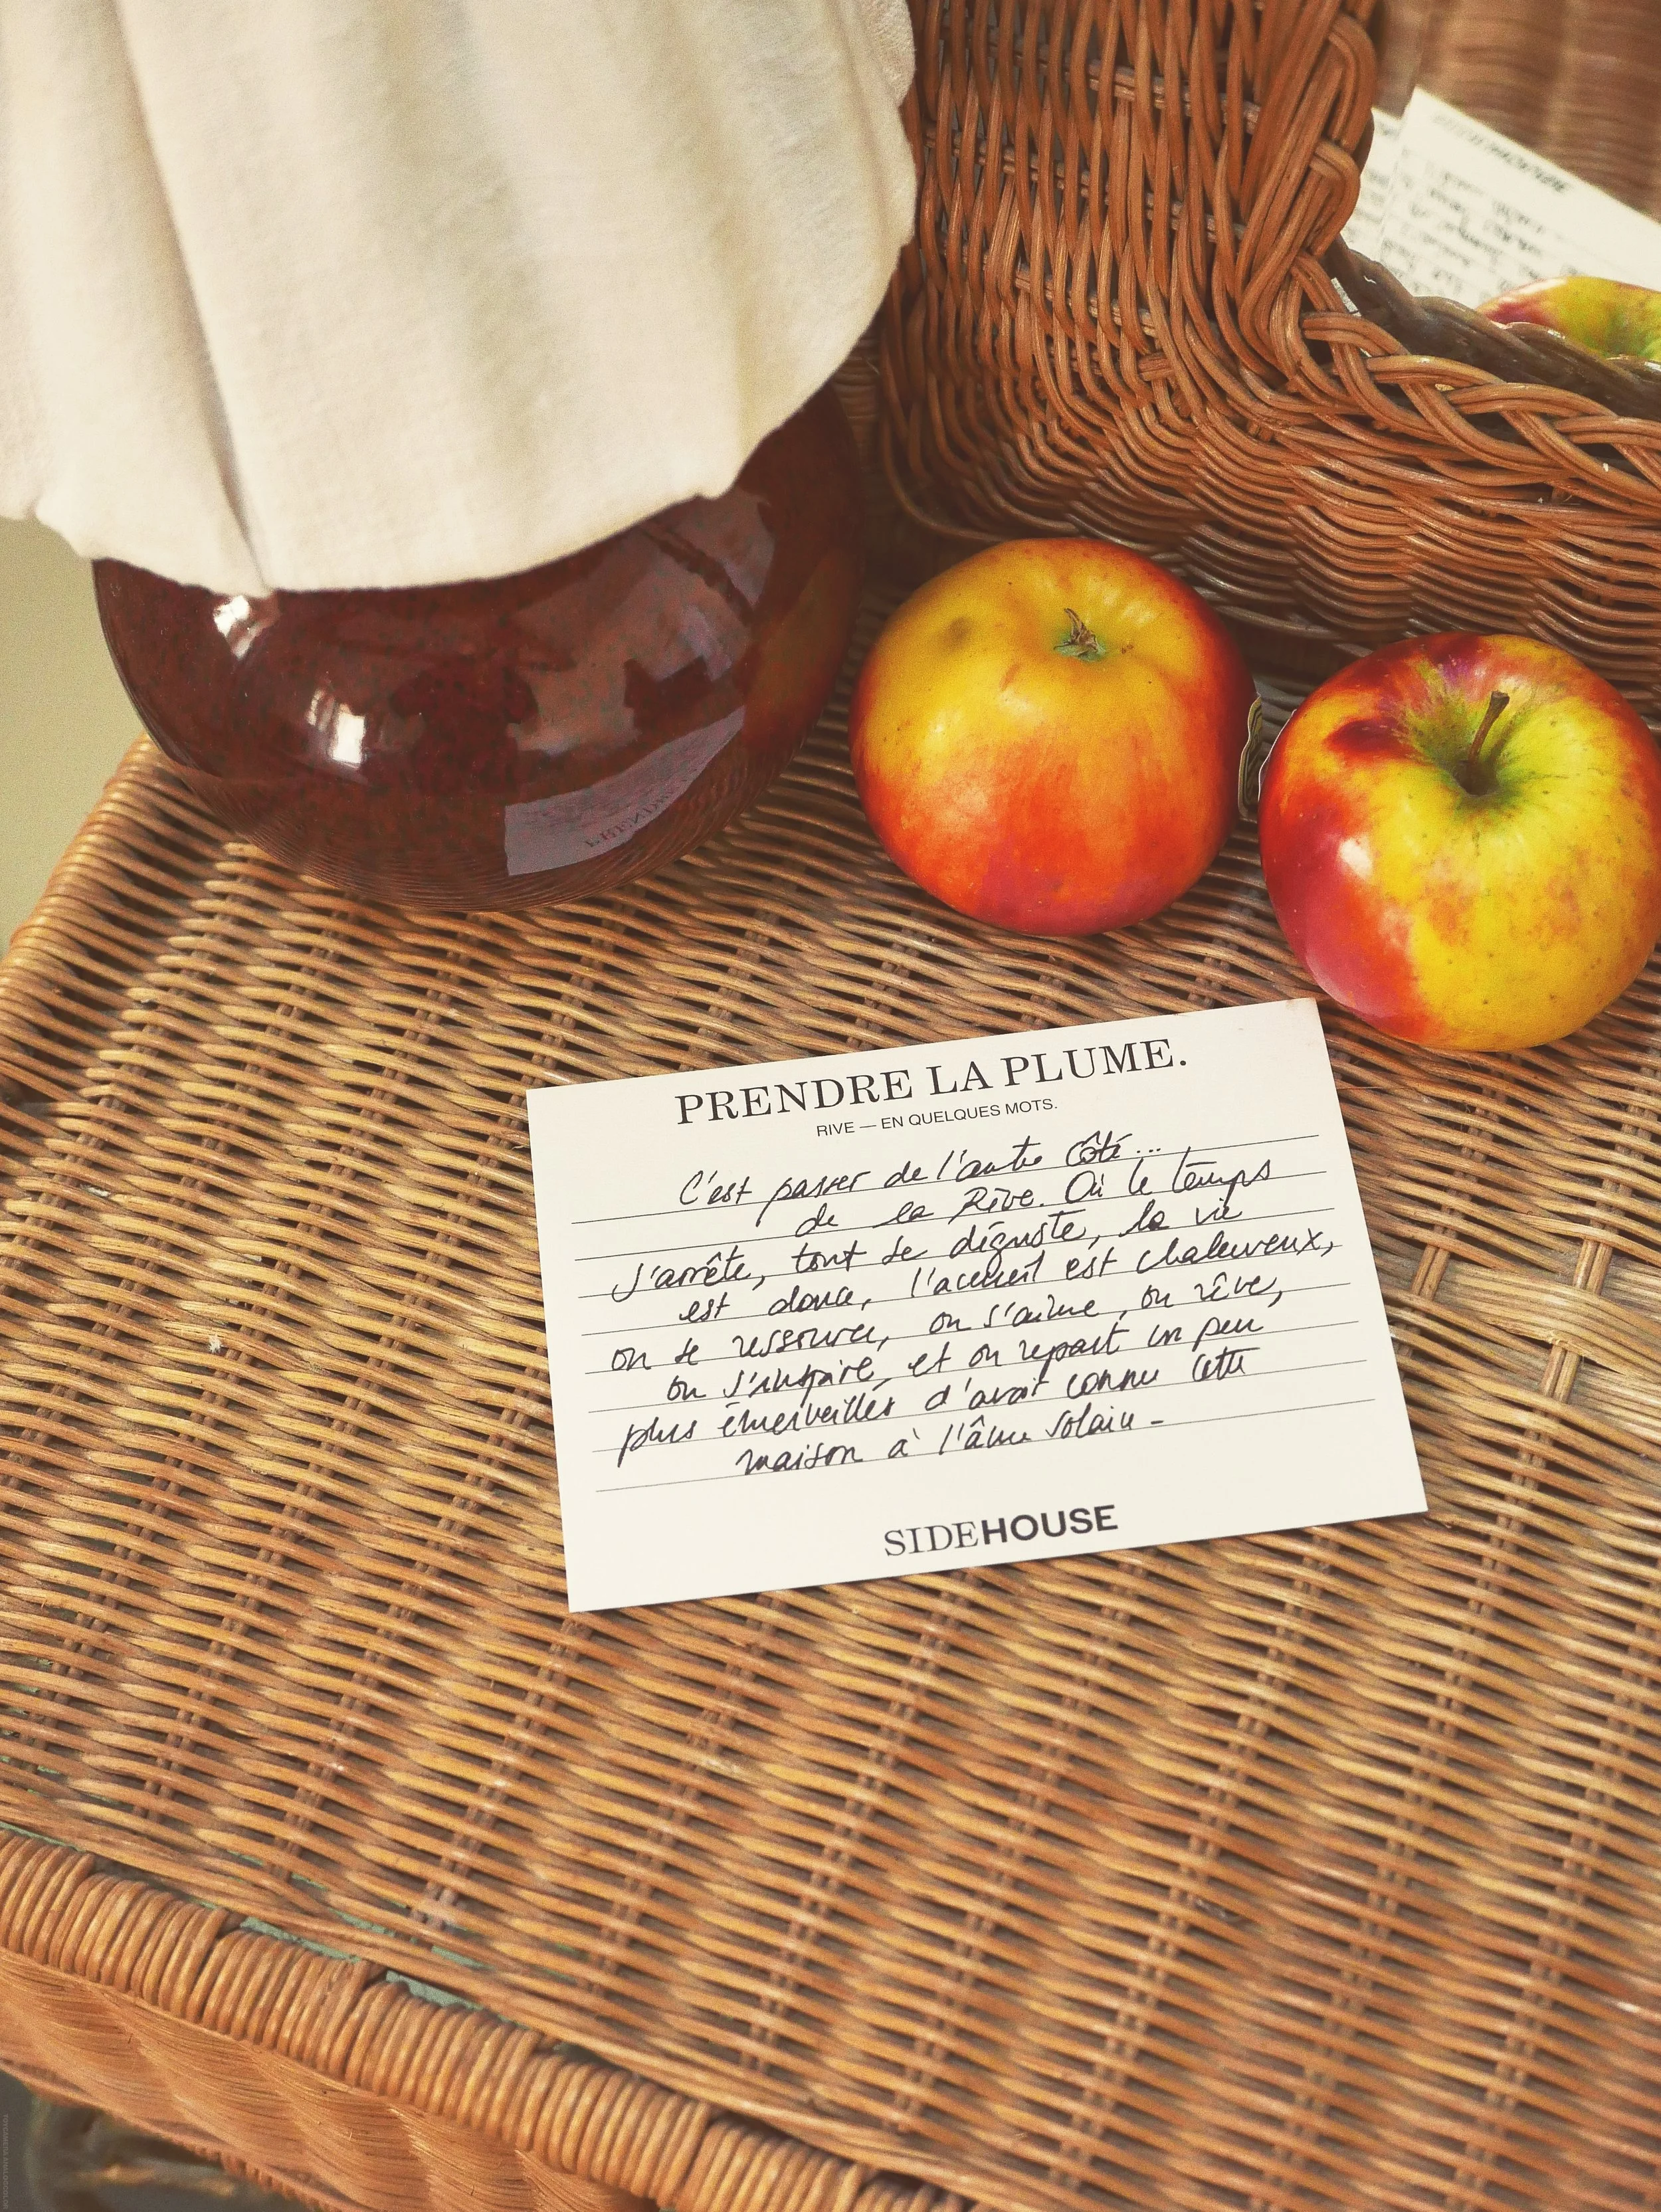 PRENDRE LA PLUME.
RIVE — EN QUELQUES MOTS.
C'est passer de l'autre côté...
de la Rive. Où le temps
s'arrête, tout se déguste, la vie
est douce, l'accueil est chaleureux,
on se ressource, on s'aime, on rêve,
on s'inspire, et on repart un peu
plus émerveillés d'avoir connu cette
maison à l'âme solaire -
SIDEHOUSE